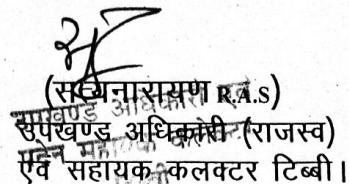 (सत्यनारायण R.A.S)
उपखण्ड अधिकारी
उपखण्ड अधिकारी (राजस्व)
एवं सहायक कलक्टर टिब्बी।